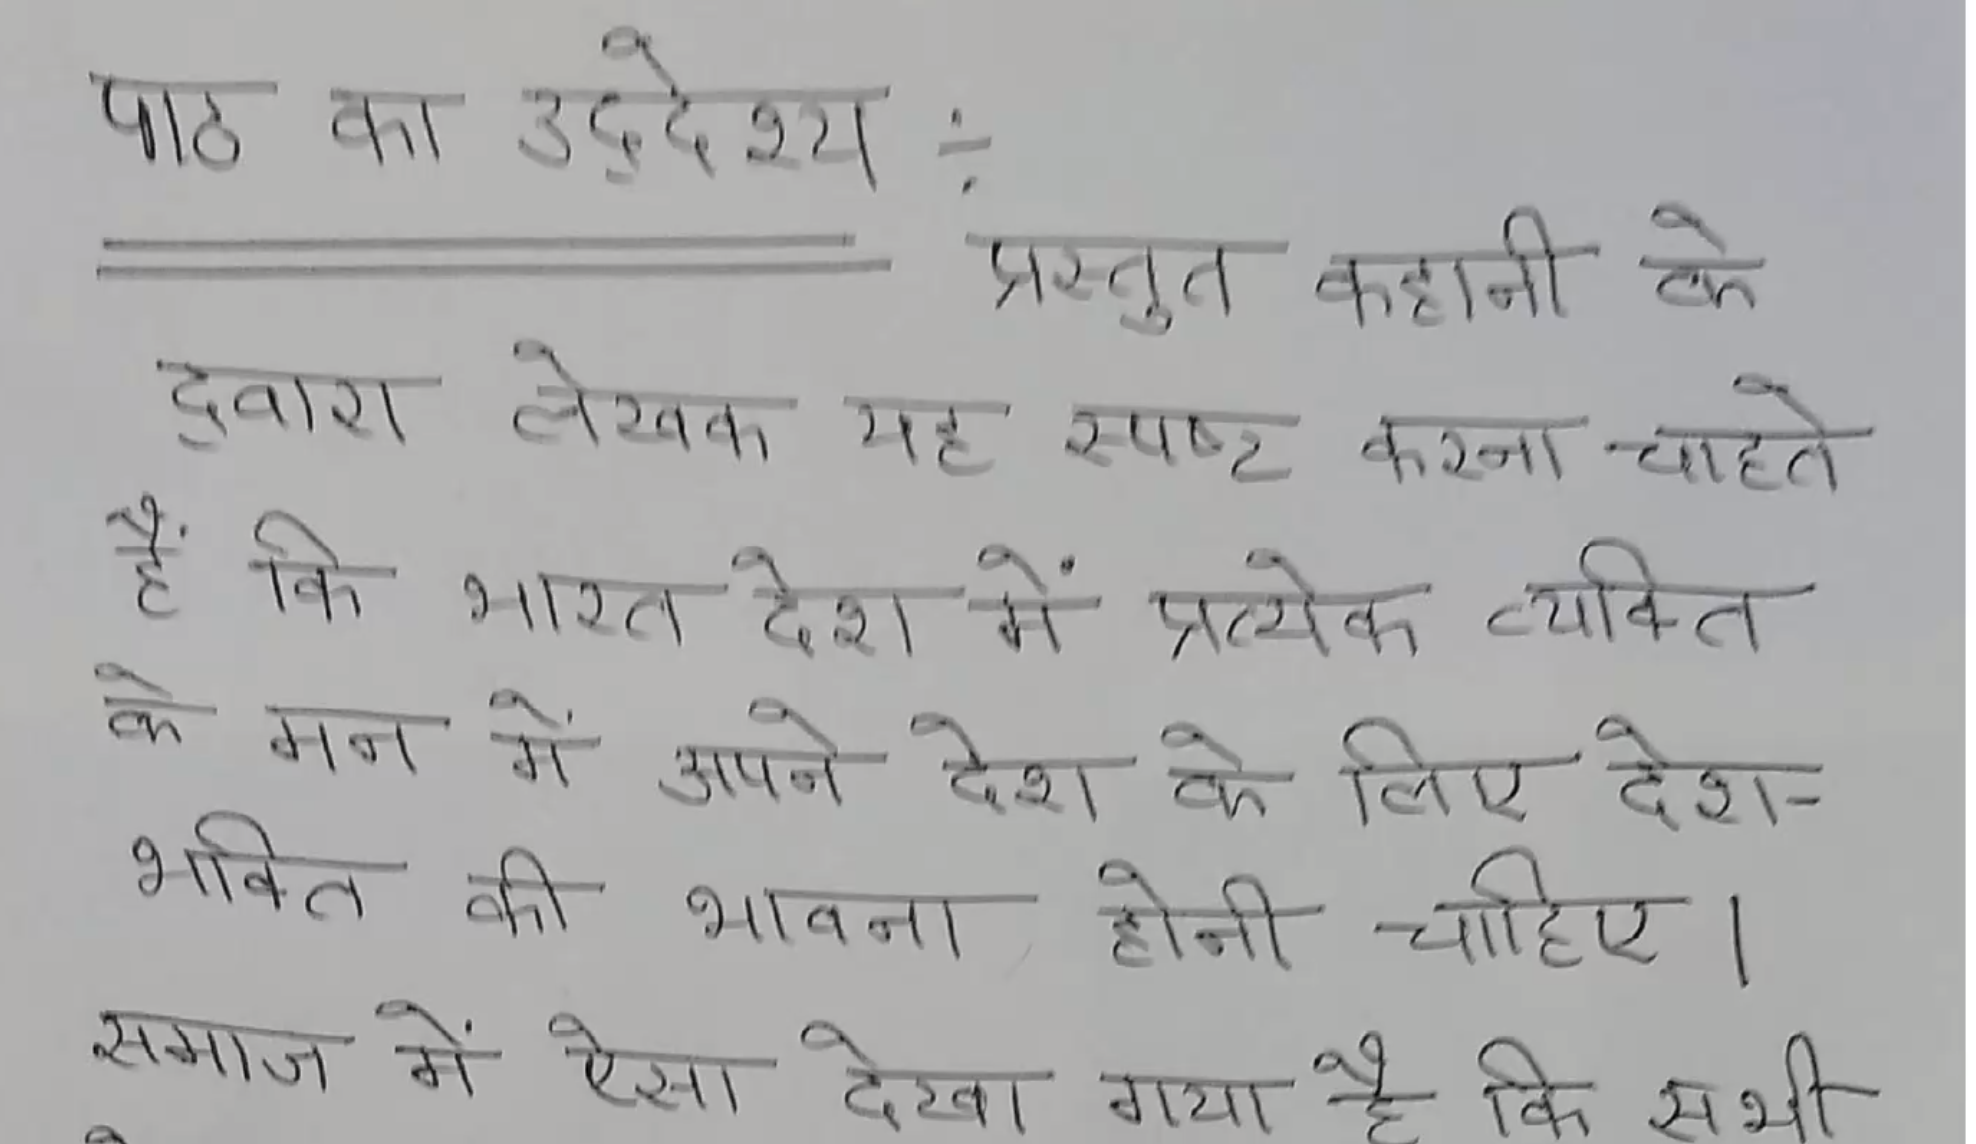 पाठ का उद्देश्य ÷
प्रस्तुत कहानी के
द्वारा लेखक यह स्पष्ट करना चाहते
हैं कि भारत देश में प्रत्येक व्यक्ति
के मन में अपने देश के लिए देश-
भक्ति की भावना होनी चाहिए।
समाज में ऐसा देखा गया है कि सभी